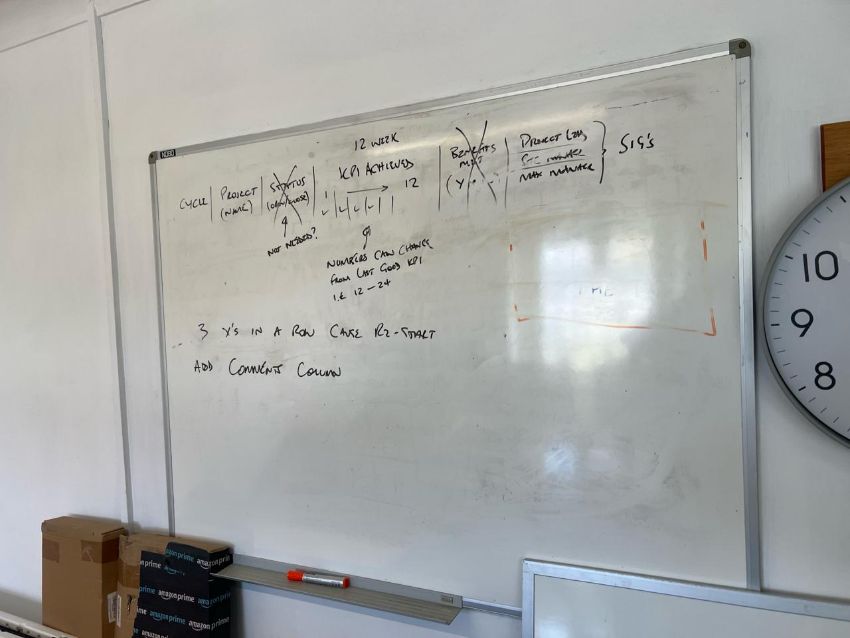 NOBO
12 WEEK
CYCLE | PROJECT (NAME) | STATUS (OPEN/CLOSE) | KPI ACHIEVED | BENEFITS MET | PROJECT LEAD } SIG'S
1 → 12
(Y
MANAGER
NOT NEEDED?
NUMBERS CAN CHANGE
FROM LAST GOOD KPI
i.e 12 - 24
3 X'S IN A ROW CAUSE RE-START
ADD COMMENTS COLUMN
10
9
8
amazonprime
amazonprime
amazonprime
amazonprime